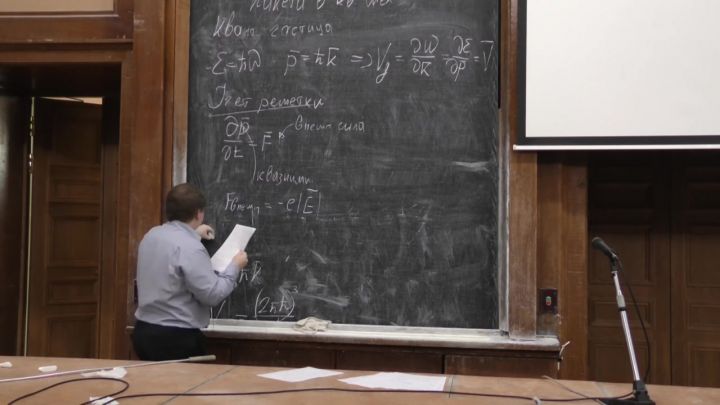 Квант частица
Ɛ = ħω p̄ = ħk̄ => V_g = ∂ω/∂k̄ = ∂Ɛ/∂p̄ = V̄
Учет решетки
∂p̄/∂t = F̄ внешн сила
квазиимп
F внешн = -e|Ē|
ħk̄
(2πħ)³